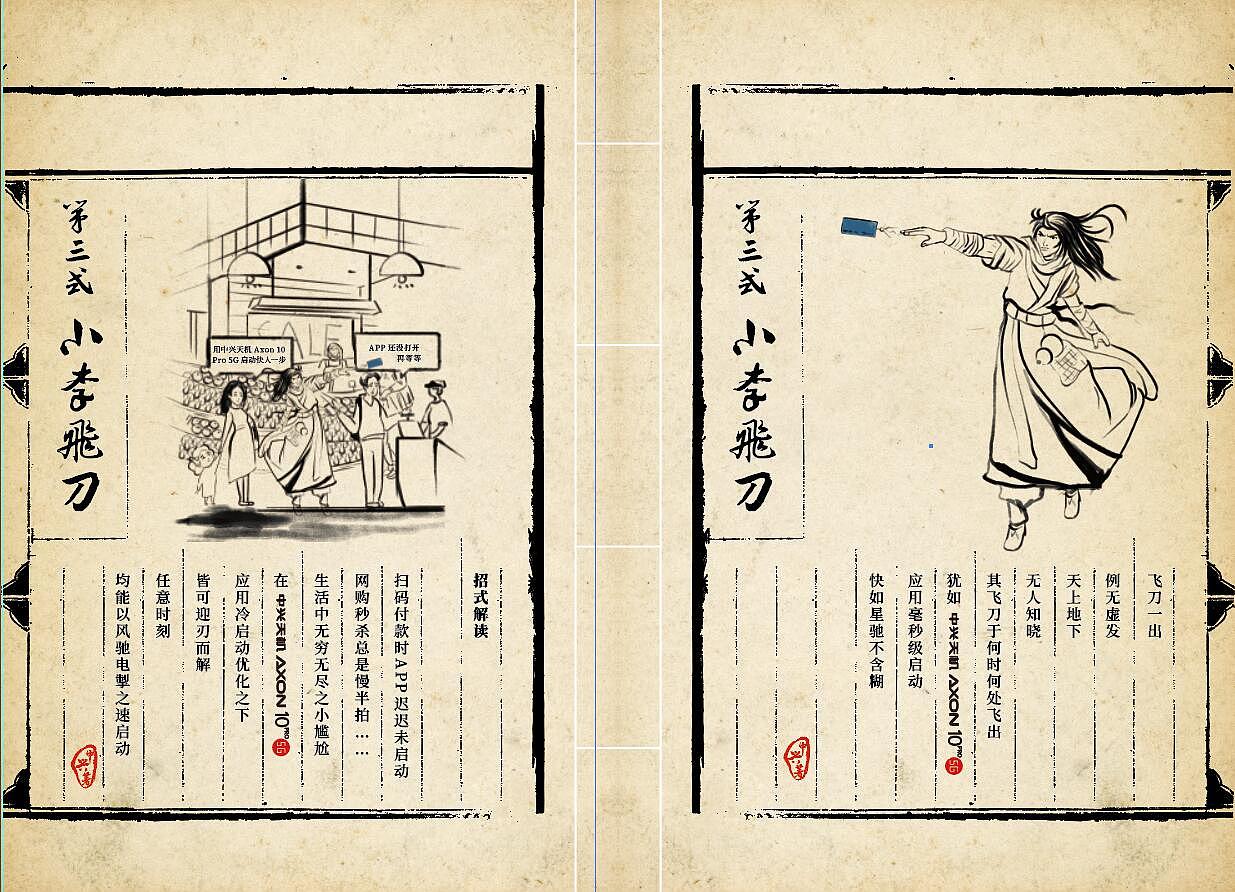 第三式
小李飛刀
飞刀一出
例无虚发
天上地下
无人知晓
其飞刀于何时何处飞出
犹如 中兴天机 AXON 10 PRO 5G
应用毫秒级启动
快如星驰不含糊
中兴著
第三式
小李飛刀
SALE
用中兴天机 Axon 10
Pro 5G 启动快人一步
APP 还没打开
再等等
招式解读
扫码付款时APP迟迟未启动
网购秒杀总是慢半拍……
生活中无穷无尽之小尴尬
在 中兴天机 AXON 10 PRO 5G
应用冷启动优化之下
皆可迎刃而解
任意时刻
均能以风驰电掣之速启动
中兴著